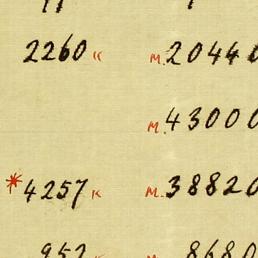 2260 K M. 20440
M. 43000
* 4257 K M. 38820
952 M 8680